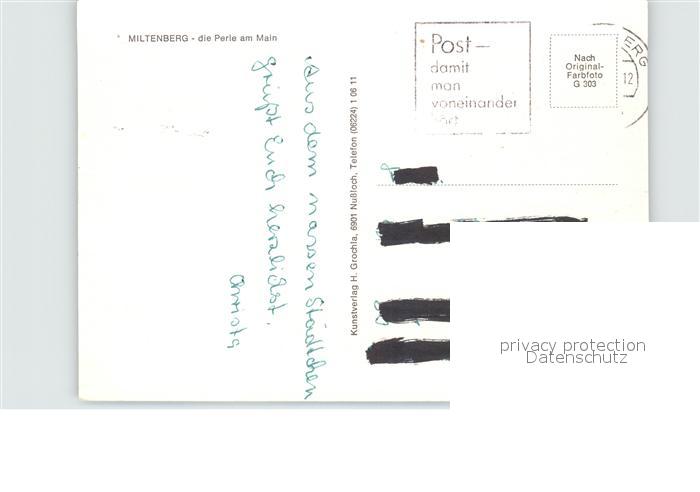 MILTENBERG - die Perle am Main
Aus dem nassen Städtchen
grüßt Euch herzlichst,
Kunstverlag H. Grochla, 6901 Nußloch, Telefon (06224) 1 06 11
Post –
damit
man
voneinander
hört
Nach
Original-
Farbfoto
G 303
ERG
12
privacy protection
Datenschutz